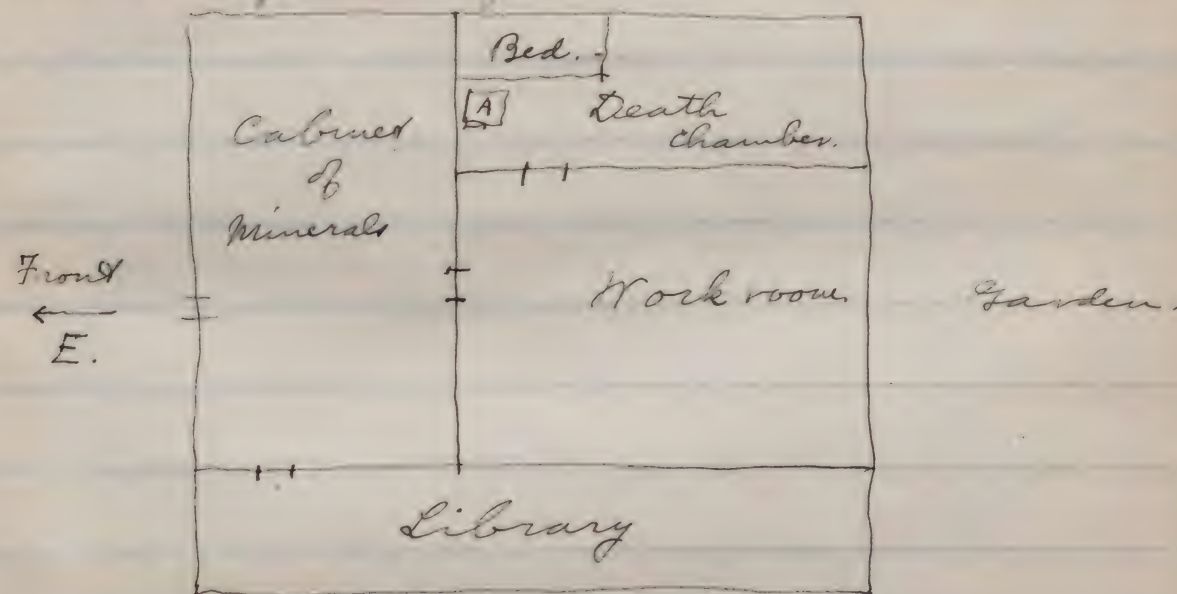 Bed.
A
Death
chamber.
Cabinet
of
Minerals
Front
E.
Work room
Garden.
Library